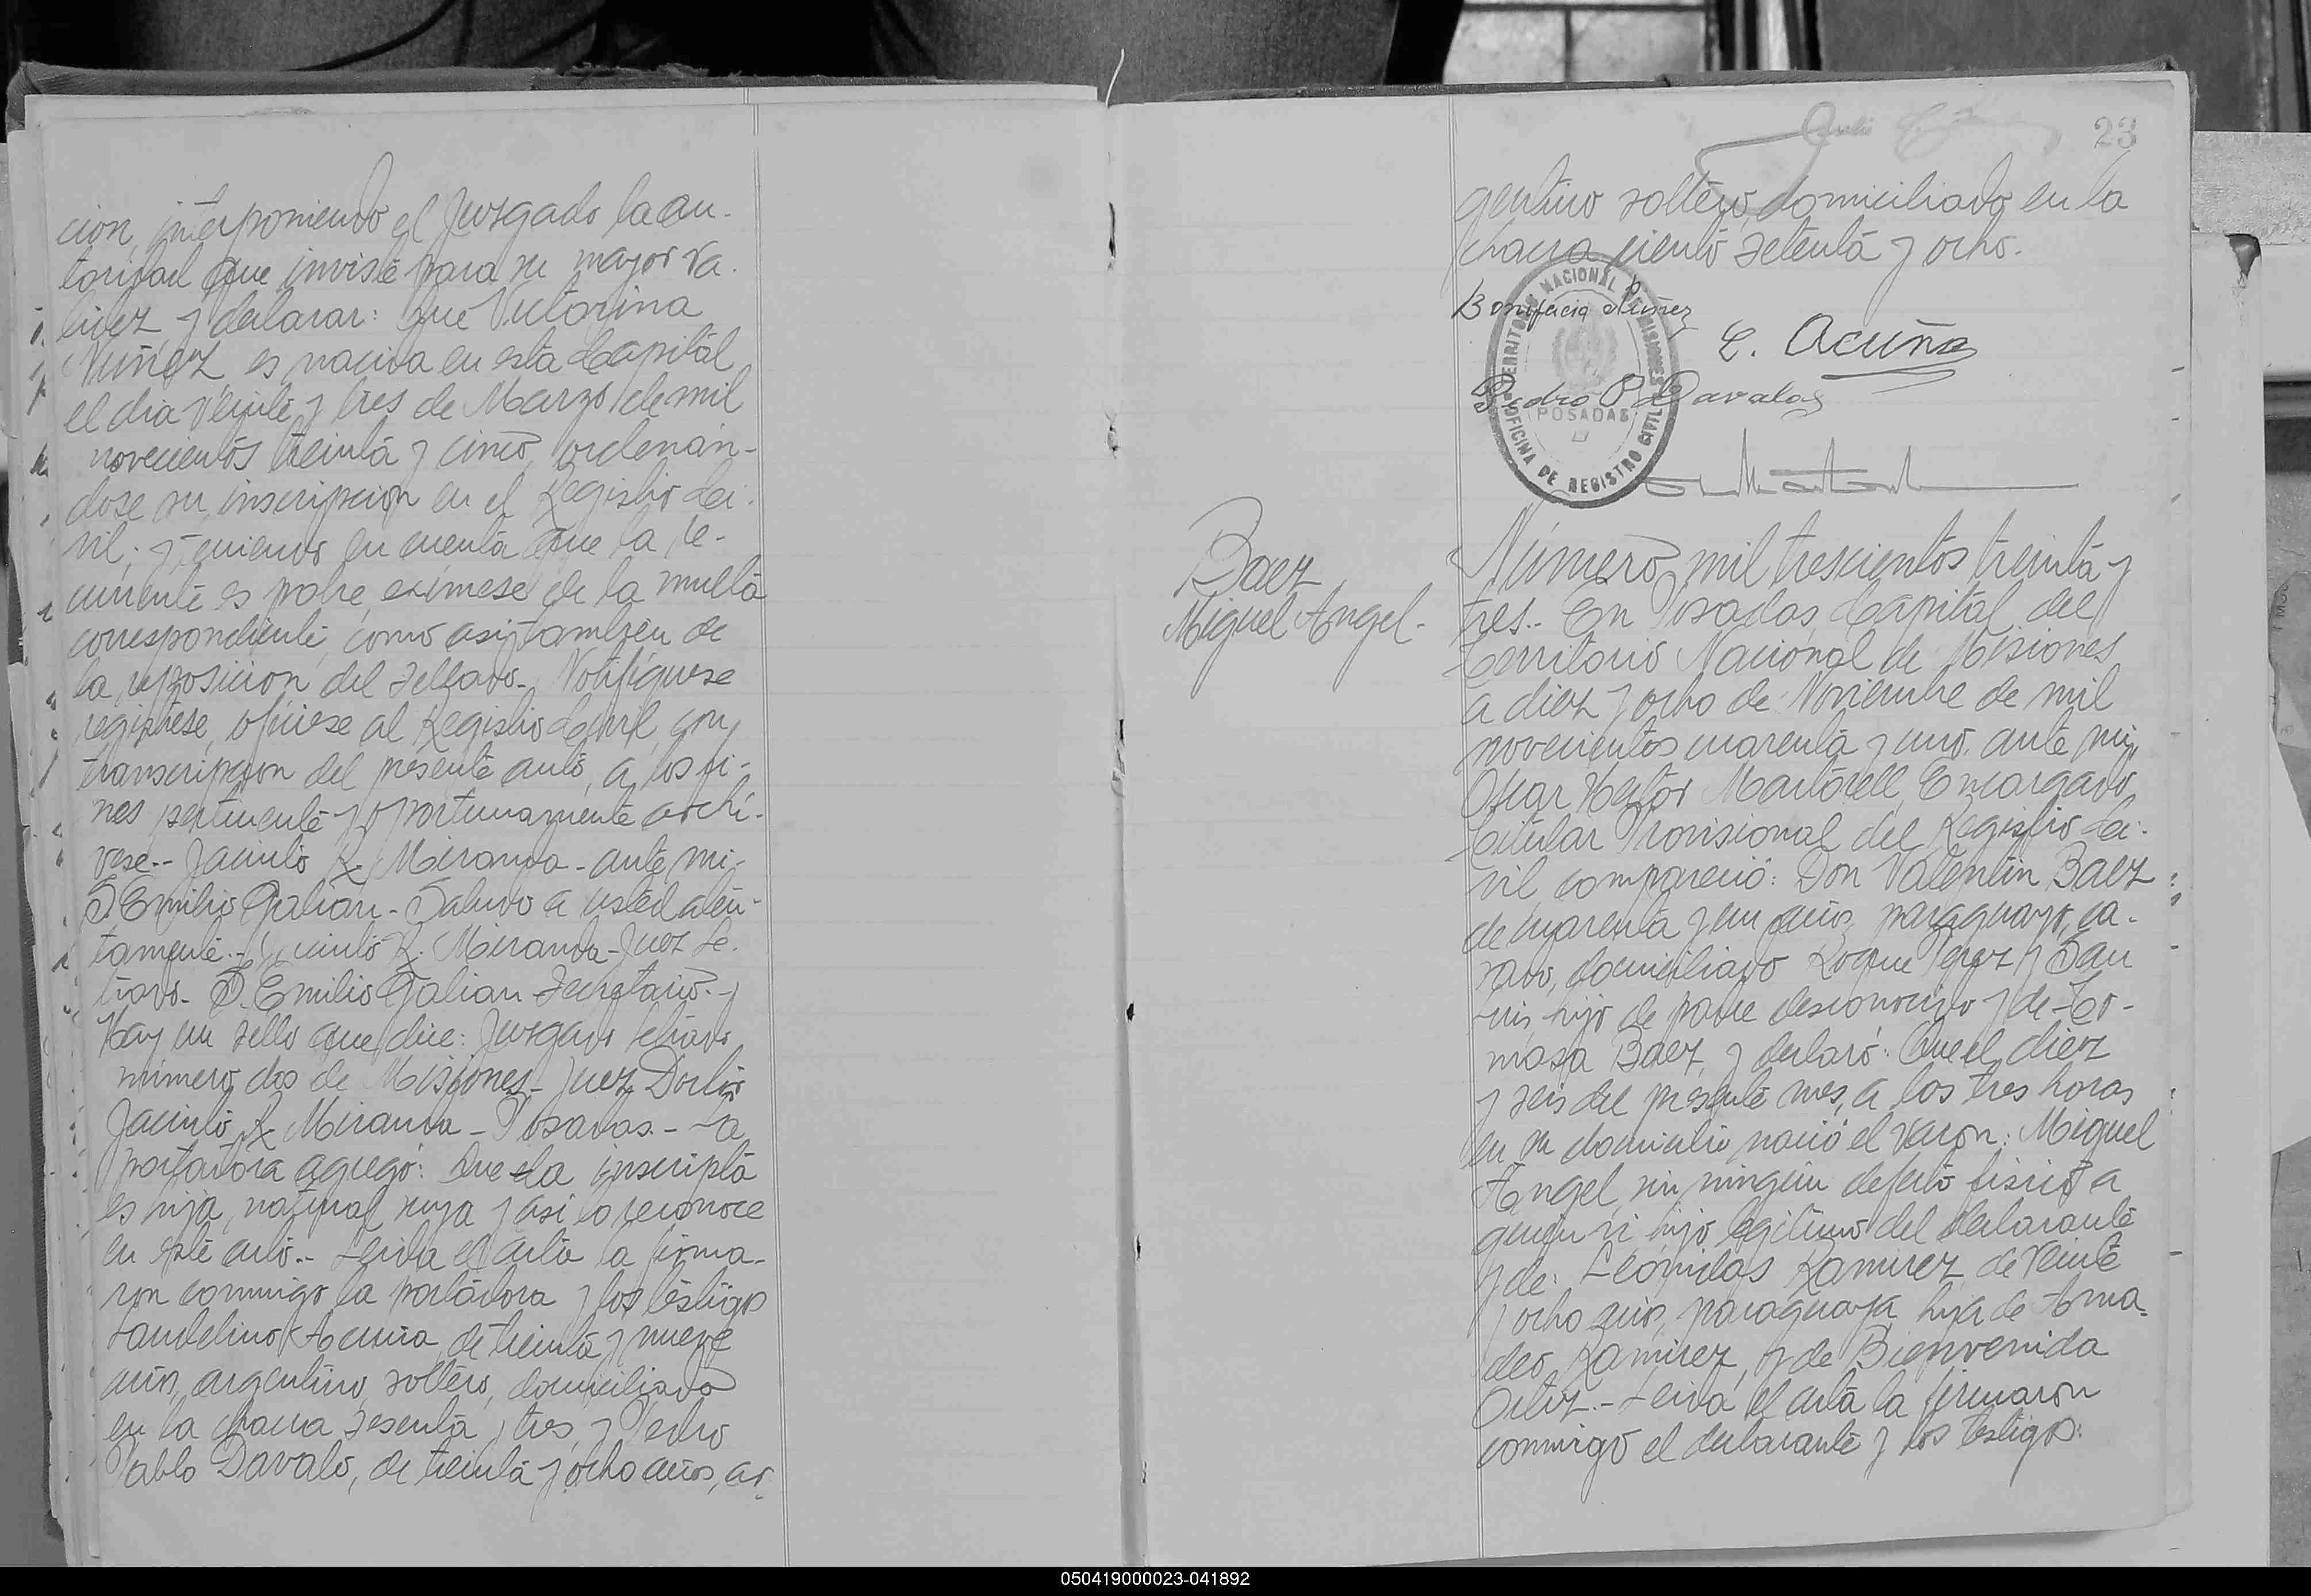 cion, interponiendo el Juzgado la au-
toridad que inviste para su mayor va-
lidez y declarar: que Victorina
Nuñez es nacida en esta Capital
el dia veinte y tres de Marzo de mil
novecientos treinta y cinco, ordenan-
dose su inscripcion en el Registro Ci-
vil; y teniendo en cuenta que la re-
currente es pobre, exímese de la multa
correspondiente, como asi tambien de
la reposicion del sellado.- Notifíquese
registrese, ofíciese al Registro Civil, con
transcripcion del presente auto, a los fi-
nes pertinente y oportunamente archi-
vese.- Jacinto R. Miranda - ante mi-
S. Emilio Galian - Saludo a usted aten-
tamente.- Jacinto R. Miranda - Juez Le-
trado - S. Emilio Galian Secretario.- y
Hay un sello que dice: Juzgado letrado
numero dos de Misiones - Juez Doctor
Jacinto R. Miranda - Posadas.- La
portadora agregó: Que la inscripta
es hija natural suya y asi la reconoce
en este acto.- Leida el acta la firma-
ron conmigo la portadora y los testigos
Landelino Acuña, de treinta y nueve
años, argentino, soltero, domiciliado
en la chacra sesenta y tres, y Pedro
Pablo Davalo, de treinta y ocho años, ar-
23
gentino soltero, domiciliado en la
chacra ciento setenta y ocho.
Bonifacia Nuñez
L. Acuña
Pedro P. Davalos
TERRITORIO NACIONAL DE MISIONES
POSADAS
OFICINA DE REGISTRO CIVIL
Baez
Miguel Angel.-
Número mil trescientos treinta y
tres.- En Posadas, Capital del
Territorio Nacional de Misiones
a diez y ocho de Noviembre de mil
novecientos cuarenta y uno, ante mi,
Oscar Hector Martorell, Encargado
Titular Provisional del Registro Ci-
vil, compareció: Don Valentin Baez
de cuarenta y un años, paraguayo, ca-
sado, domiciliado Roque Perez y San
Luis, hijo de padre desconocido y de To-
masa Baez, y declaró: Que el diez
y seis del presente mes, a las tres horas
en su domicilio nació el varon: Miguel
Angel, sin ningún defecto fisico a
hijo legitimo del declarante
y de: Leonidas Ramirez, de veinte
y ocho años, paraguaya, hija de Ama-
deo Ramirez, y de Bienvenida
Ortiz.- Leida el acta la firmaron
conmigo el declarante y los testigos:
050419000023-041892